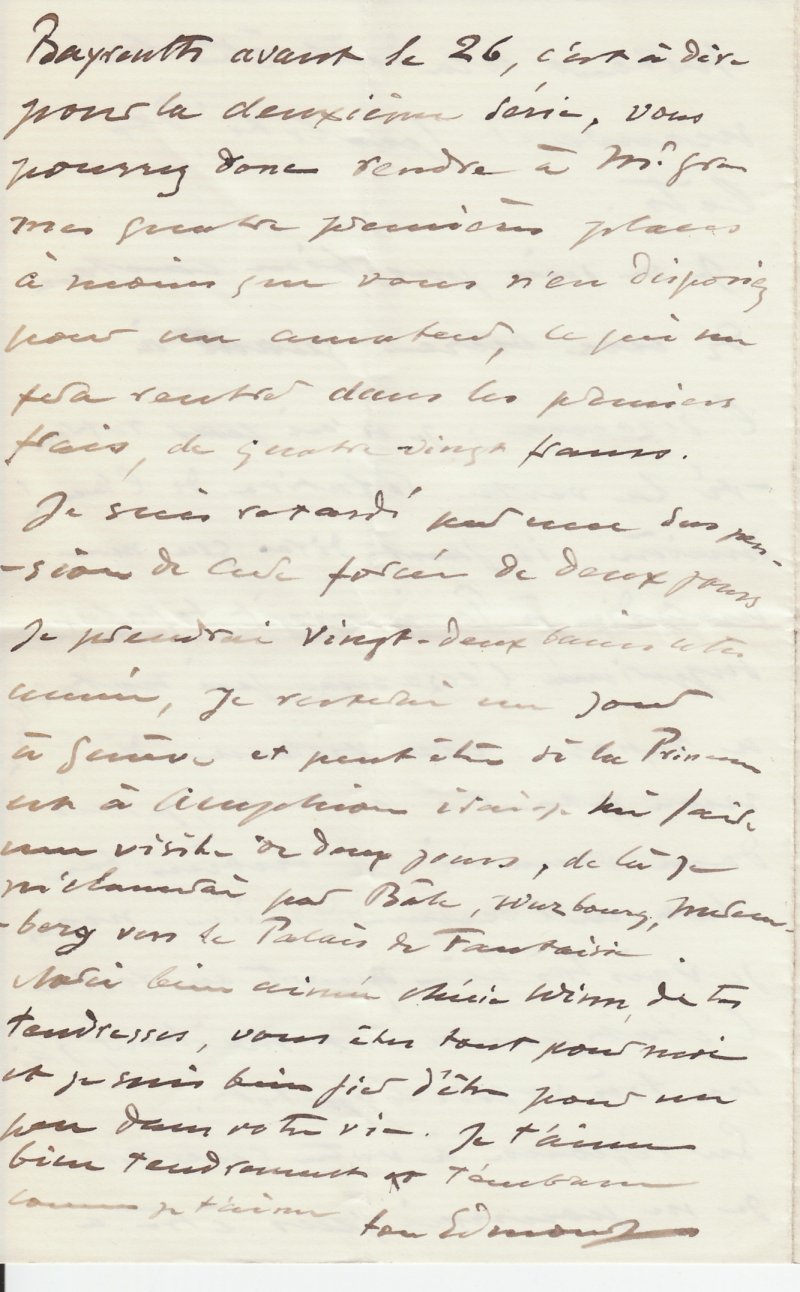 Bayreuth avant le 26, c'est à dire
pour la deuxième série, vous
pourrez donc rendre à Mr. Gros
mes quatre premières places
à moins que vous n'en disposiez
pour un amateur, ce qui me
fera rentrer dans les premiers
frais, de quatre-vingt francs.
Je suis retardé par une suspen-
-sion de cure forcée de deux jours
Je prendrai vingt-deux bains cette
année, je resterai un jour
à Genève et peut être si la Princesse
est à Amphion irai-je lui faire
une visite de deux jours, de là je
m'élancerai par Bâle, Wurzbourg, Nurem-
-berg vers le Palais de Fantaisie.
Merci bien aimée chérie Winn, de tes
tendresses, vous êtes tout pour moi
et je suis bien fier d'être pour un
peu dans votre vie. Je t'aime
bien tendrement et t'embrasse
comme je t'aime
ton Edmond